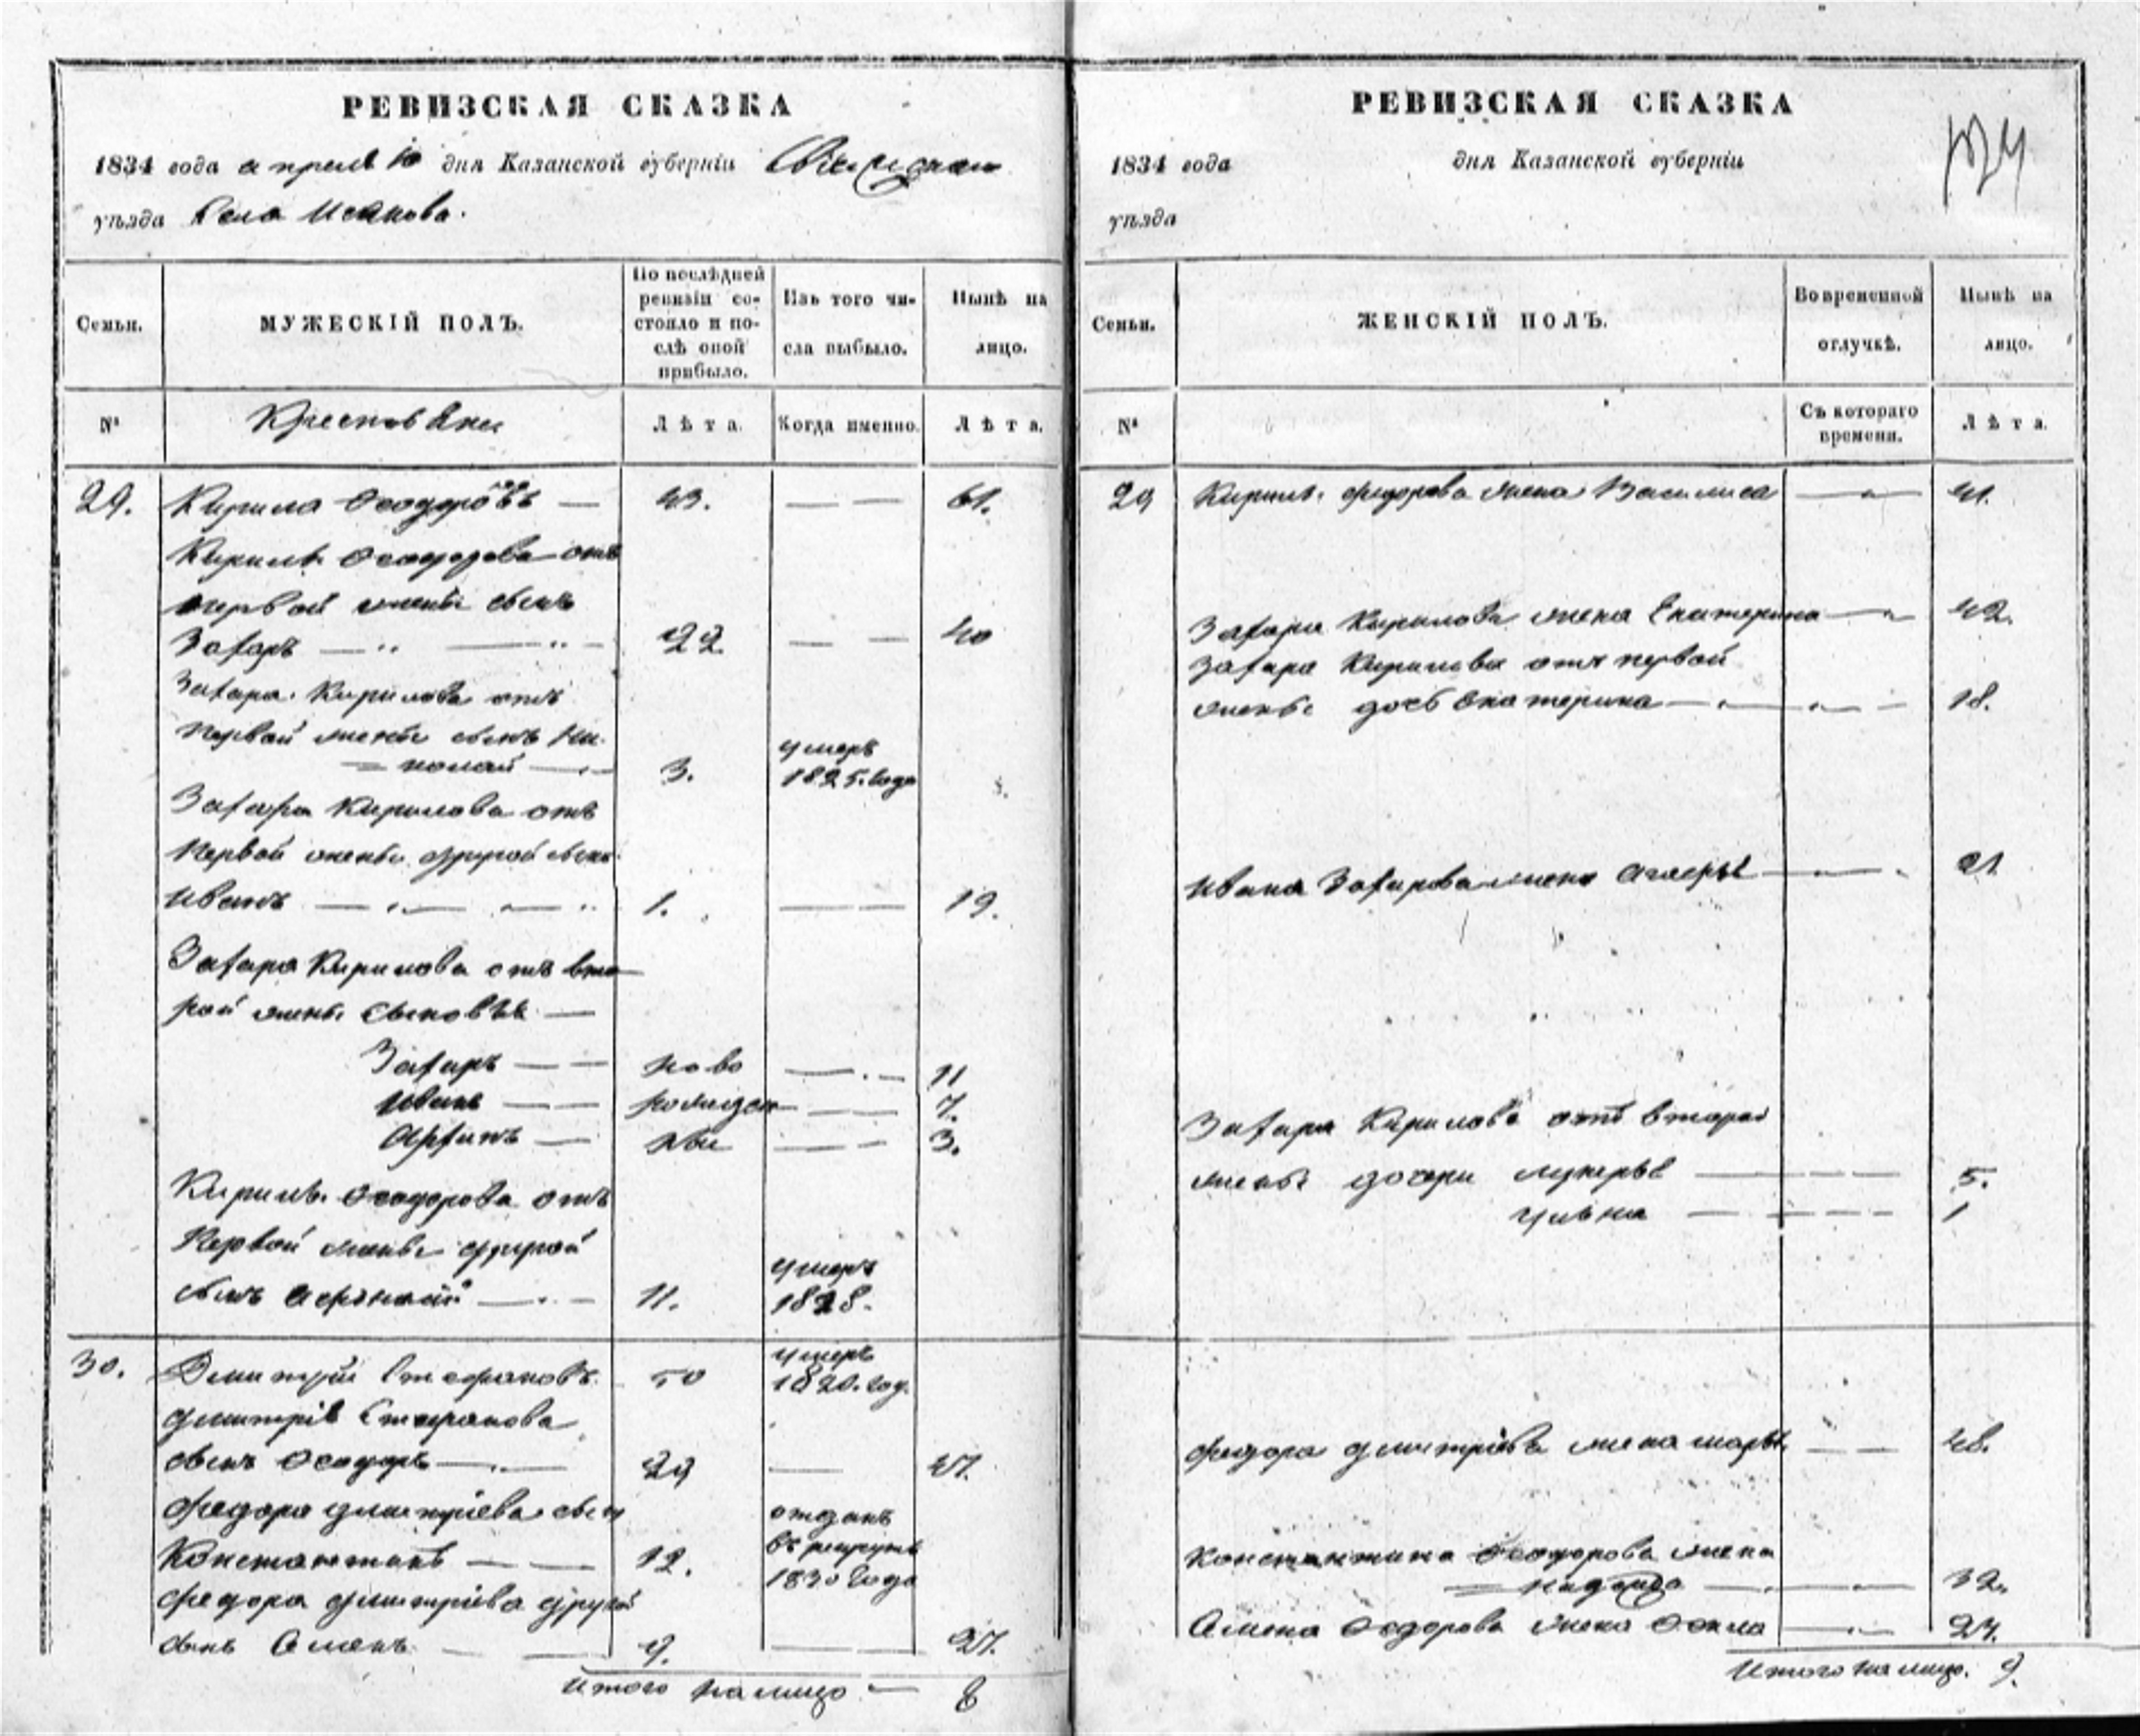 РЕВИЗСКАЯ СКАЗКА
1834 года апреля 10 дня Казанской губерніи
уѣзда Села Исакова.
Семьи.
МУЖЕСКІЙ ПОЛЪ.
По послѣдней ревизіи состояло и послѣ оной прибыло.
Изъ того числа выбыло.
Нынѣ на лицо.
№
Крестьяне
Лѣта.
Когда именно.
Лѣта.
29. Кирила Ѳеодоровъ — 43. — — 61.
Кирилы Ѳеодорова отъ
первой жены сынъ
Захаръ — 22. — — 40
Захара Кирилова отъ
первой жены сынъ Ни-
колай — 3. умеръ 1825. года
Захара Кирилова отъ
первой жены другой сынъ
Иванъ — 1. — — 19.
Захара Кирилова отъ вто-
рой жены сыновья —
Захаръ — — ново — — 11
Иванъ — — рожден — — 7.
— ные — — 3.
Кирилы Ѳеодорова отъ
первой жены другой
сынъ — 11. умеръ 1828.
30. Дмитрій Стефановъ. 50 умеръ 1820. год.
Дмитрія Стефанова
сынъ Ѳеодоръ — — 47.
Федора Дмитріева сын
Константинъ — — 12. отданъ въ рекруты 1830 года
Федора Дмитріева другой
сынъ Семенъ — 9. — 27.
Итого на лицо — 8
РЕВИЗСКАЯ СКАЗКА
1834 года дня Казанской губерніи
уѣзда
Семьи.
ЖЕНСКІЙ ПОЛЪ.
Во временной отлучкѣ.
Нынѣ на лицо.
№
Съ котораго времени.
Лѣта.
29 Кирилы Федорова жена Василиса — 41.
Захара Кирилова жена Екатерина — 42.
Захара Кирилова отъ первой
жены дочь Екатерина — 18.
Ивана Захарова жена — 21
Захара Кирилова отъ второй
жены дочери Лукерья — 5.
Ульяна — 1
Федора Дмитріева жена Марья — 48.
Константина Ѳеодорова жена
Надежда — 32.
Семена Ѳеодорова жена Ѳекла — 24.
Итого на лицо. 9.